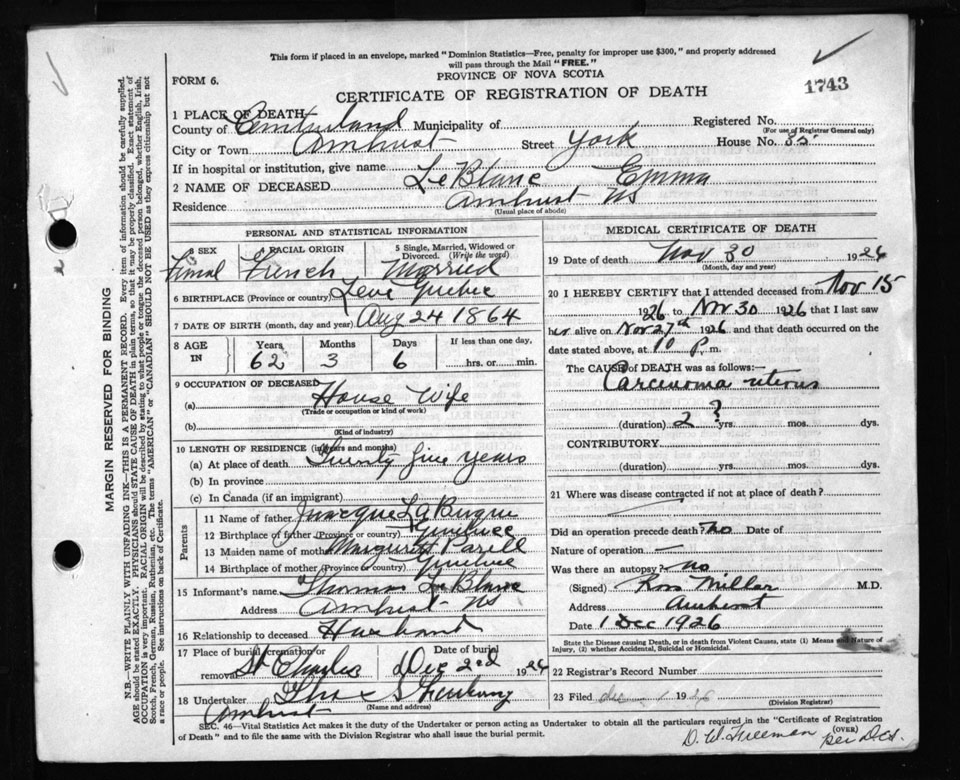 This form if placed in an envelope, marked "Dominion Statistics—Free, penalty for improper use $300," and properly addressed
will pass through the Mail "FREE."
FORM 6.
PROVINCE OF NOVA SCOTIA
1743
CERTIFICATE OF REGISTRATION OF DEATH
1 PLACE OF DEATH
County of Cumberland Municipality of Registered No.
(For use of Registrar General only)
City or Town Amherst Street York House No. 85
If in hospital or institution, give name
2 NAME OF DECEASED LeBlanc Emma
Residence Amherst NS
(Usual place of abode)
PERSONAL AND STATISTICAL INFORMATION
3 SEX 4 RACIAL ORIGIN 5 Single, Married, Widowed or Divorced. (Write the word)
Femal French Married
6 BIRTHPLACE (Province or country) Levi Quebec
7 DATE OF BIRTH (month, day and year) Aug 24 1864
8 AGE IN Years Months Days If less than one day,
62 3 6 hrs. or min.
9 OCCUPATION OF DECEASED
(a) House Wife
(Trade or occupation or kind of work)
(b)
(Kind of industry)
10 LENGTH OF RESIDENCE (in years and months)
(a) At place of death Twenty five years
(b) In province
(c) In Canada (if an immigrant)
Parents
11 Name of father
12 Birthplace of father (Province or country) Quebec
13 Maiden name of mother Margaret
14 Birthplace of mother (Province or country) Quebec
15 Informant's name Thomas LeBlanc
Address Amherst NS
16 Relationship to deceased Husband
17 Place of burial, cremation or removal Date of burial
St Charles Dec 2nd 1926
18 Undertaker
(Name and address)
Amherst
MEDICAL CERTIFICATE OF DEATH
19 Date of death Nov 30 1926
(Month, day and year)
20 I HEREBY CERTIFY that I attended deceased from Nov 15
1926 to Nov 30 1926 that I last saw
her alive on Nov 27th 1926 and that death occurred on
date stated above, at 10 P. m.
The CAUSE of DEATH was as follows:—
Carcinoma uterus
?
(duration) 2 yrs. mos. dys.
CONTRIBUTORY
(duration) yrs. mos. dys.
21 Where was disease contracted if not at place of death?
Did an operation precede death? No Date of
Nature of operation —
Was there an autopsy? no
(Signed) Ross Millar M.D.
Address Amherst
Date 1 Dec 1926
State the Disease causing Death, or in death from Violent Causes, state (1) Means and Nature of
Injury, (2) whether Accidental, Suicidal or Homicidal.
22 Registrar's Record Number
23 Filed 19
(Division Registrar)
SEC. 46—Vital Statistics Act makes it the duty of the Undertaker or person acting as Undertaker to obtain all the particulars required in the "Certificate of Registration
of Death" and to file the same with the Division Registrar who shall issue the burial permit.
(OVER)
D. W. Freeman per
MARGIN RESERVED FOR BINDING
N.B.—WRITE PLAINLY WITH UNFADING INK—THIS IS A PERMANENT RECORD. Every item of information should be carefully supplied.
AGE should be stated EXACTLY. PHYSICIANS should STATE CAUSE OF DEATH in plain terms, so that it may be properly classified. Exact statement of
OCCUPATION is very important. RACIAL ORIGIN will be described by stating to what people or tongue the deceased person belonged, whether English, Irish,
Scotch, French, German, Russian, Ruthenian, etc. The terms "AMERICAN" or "CANADIAN" SHOULD NOT BE USED as they express citizenship but not
a race or people. See instructions on back of Certificate.